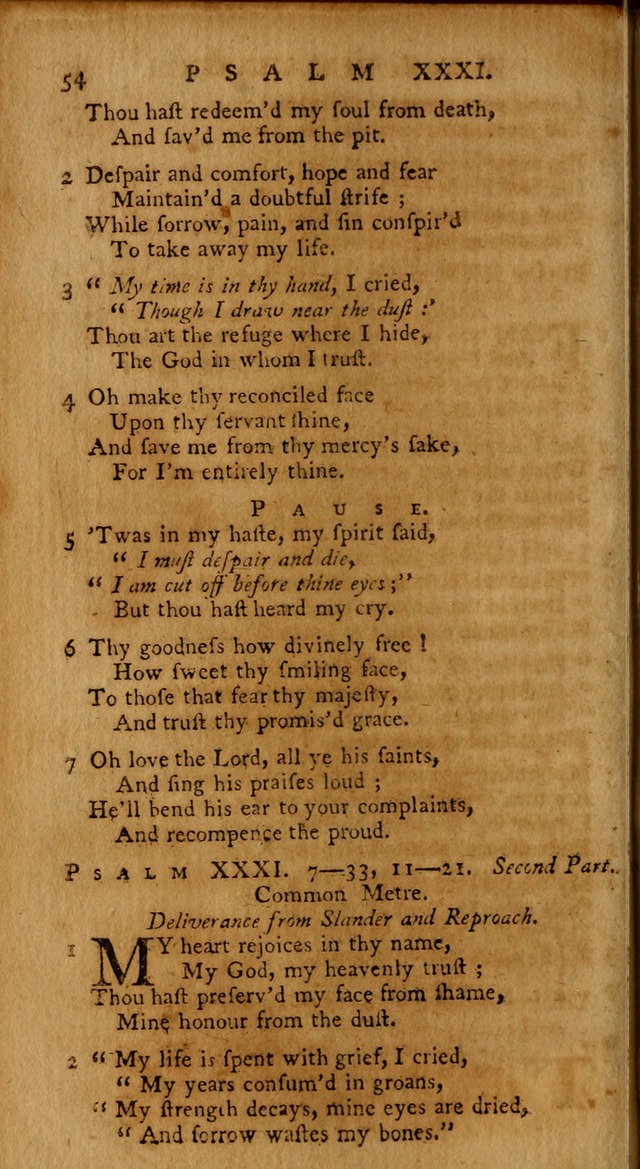 54 PSALM XXXI.
Thou haſt redeem'd my ſoul from death,
And ſav'd me from the pit.
2 Deſpair and comfort, hope and fear
Maintain'd a doubtful ſtrife ;
While ſorrow, pain, and ſin conſpir'd
To take away my life.
3 “ My time is in thy hand, I cried,
“ Though I draw near the duſt :’
Thou art the refuge where I hide,
The God in whom I truſt.
4 Oh make thy reconciled face
Upon thy ſervant ſhine,
And ſave me from thy mercy's ſake,
For I'm entirely thine.
PAUSE.
5 'Twas in my haſte, my ſpirit ſaid,
“ I muſt deſpair and die,
“ I am cut off before thine eyes ;”
But thou haſt heard my cry.
6 Thy goodneſs how divinely free !
How ſweet thy ſmiling face,
To thoſe that fear thy majeſty,
And truſt thy promis'd grace.
7 Oh love the Lord, all ye his ſaints,
And ſing his praiſes loud ;
He'll bend his ear to your complaints,
And recompence the proud.
PSALM XXXI. 7—33, 11—21. Second Part.
Common Metre.
Deliverance from Slander and Reproach.
1 MY heart rejoices in thy name,
My God, my heavenly truſt ;
Thou haſt preſerv'd my face from ſhame,
Mine honour from the duſt.
2 “ My life is ſpent with grief, I cried,
“ My years conſum'd in groans,
“ My ſtrength decays, mine eyes are dried,
“ And ſorrow waſtes my bones.”